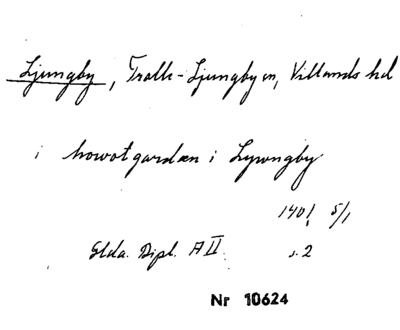 Ljungby, Trolle-Ljungby sn, Villands hd
i howotgardæn i Lywngby
1401 5/1
Glda. Dipl. A II s. 2
Nr 10624